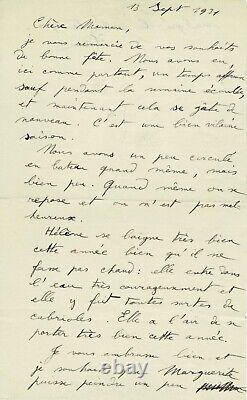 13 Sept 1931
Chère Maman,
je vous remercie de vos souhaits
de bonne fête. Nous avons eu,
ici comme partout, un temps affreux
sauf pendant la semaine écoulée
et maintenant cela se gâte de
nouveau. C'est une bien vilaine
saison.
Nous avons un peu circulé
en bateau quand même, mais
bien peu. Quand même on se
repose et on n'est pas mal-
heureux.
Hélène se baigne très bien
cette année bien qu'il ne
fasse pas chaud : elle entre dans
l'eau très courageusement et
elle y fait toutes sortes de
cabrioles. Elle a l'air de se
porter très bien cette année.
Je vous embrasse bien et
je souhaite Marguerite
puisse peindre un peu
ebay